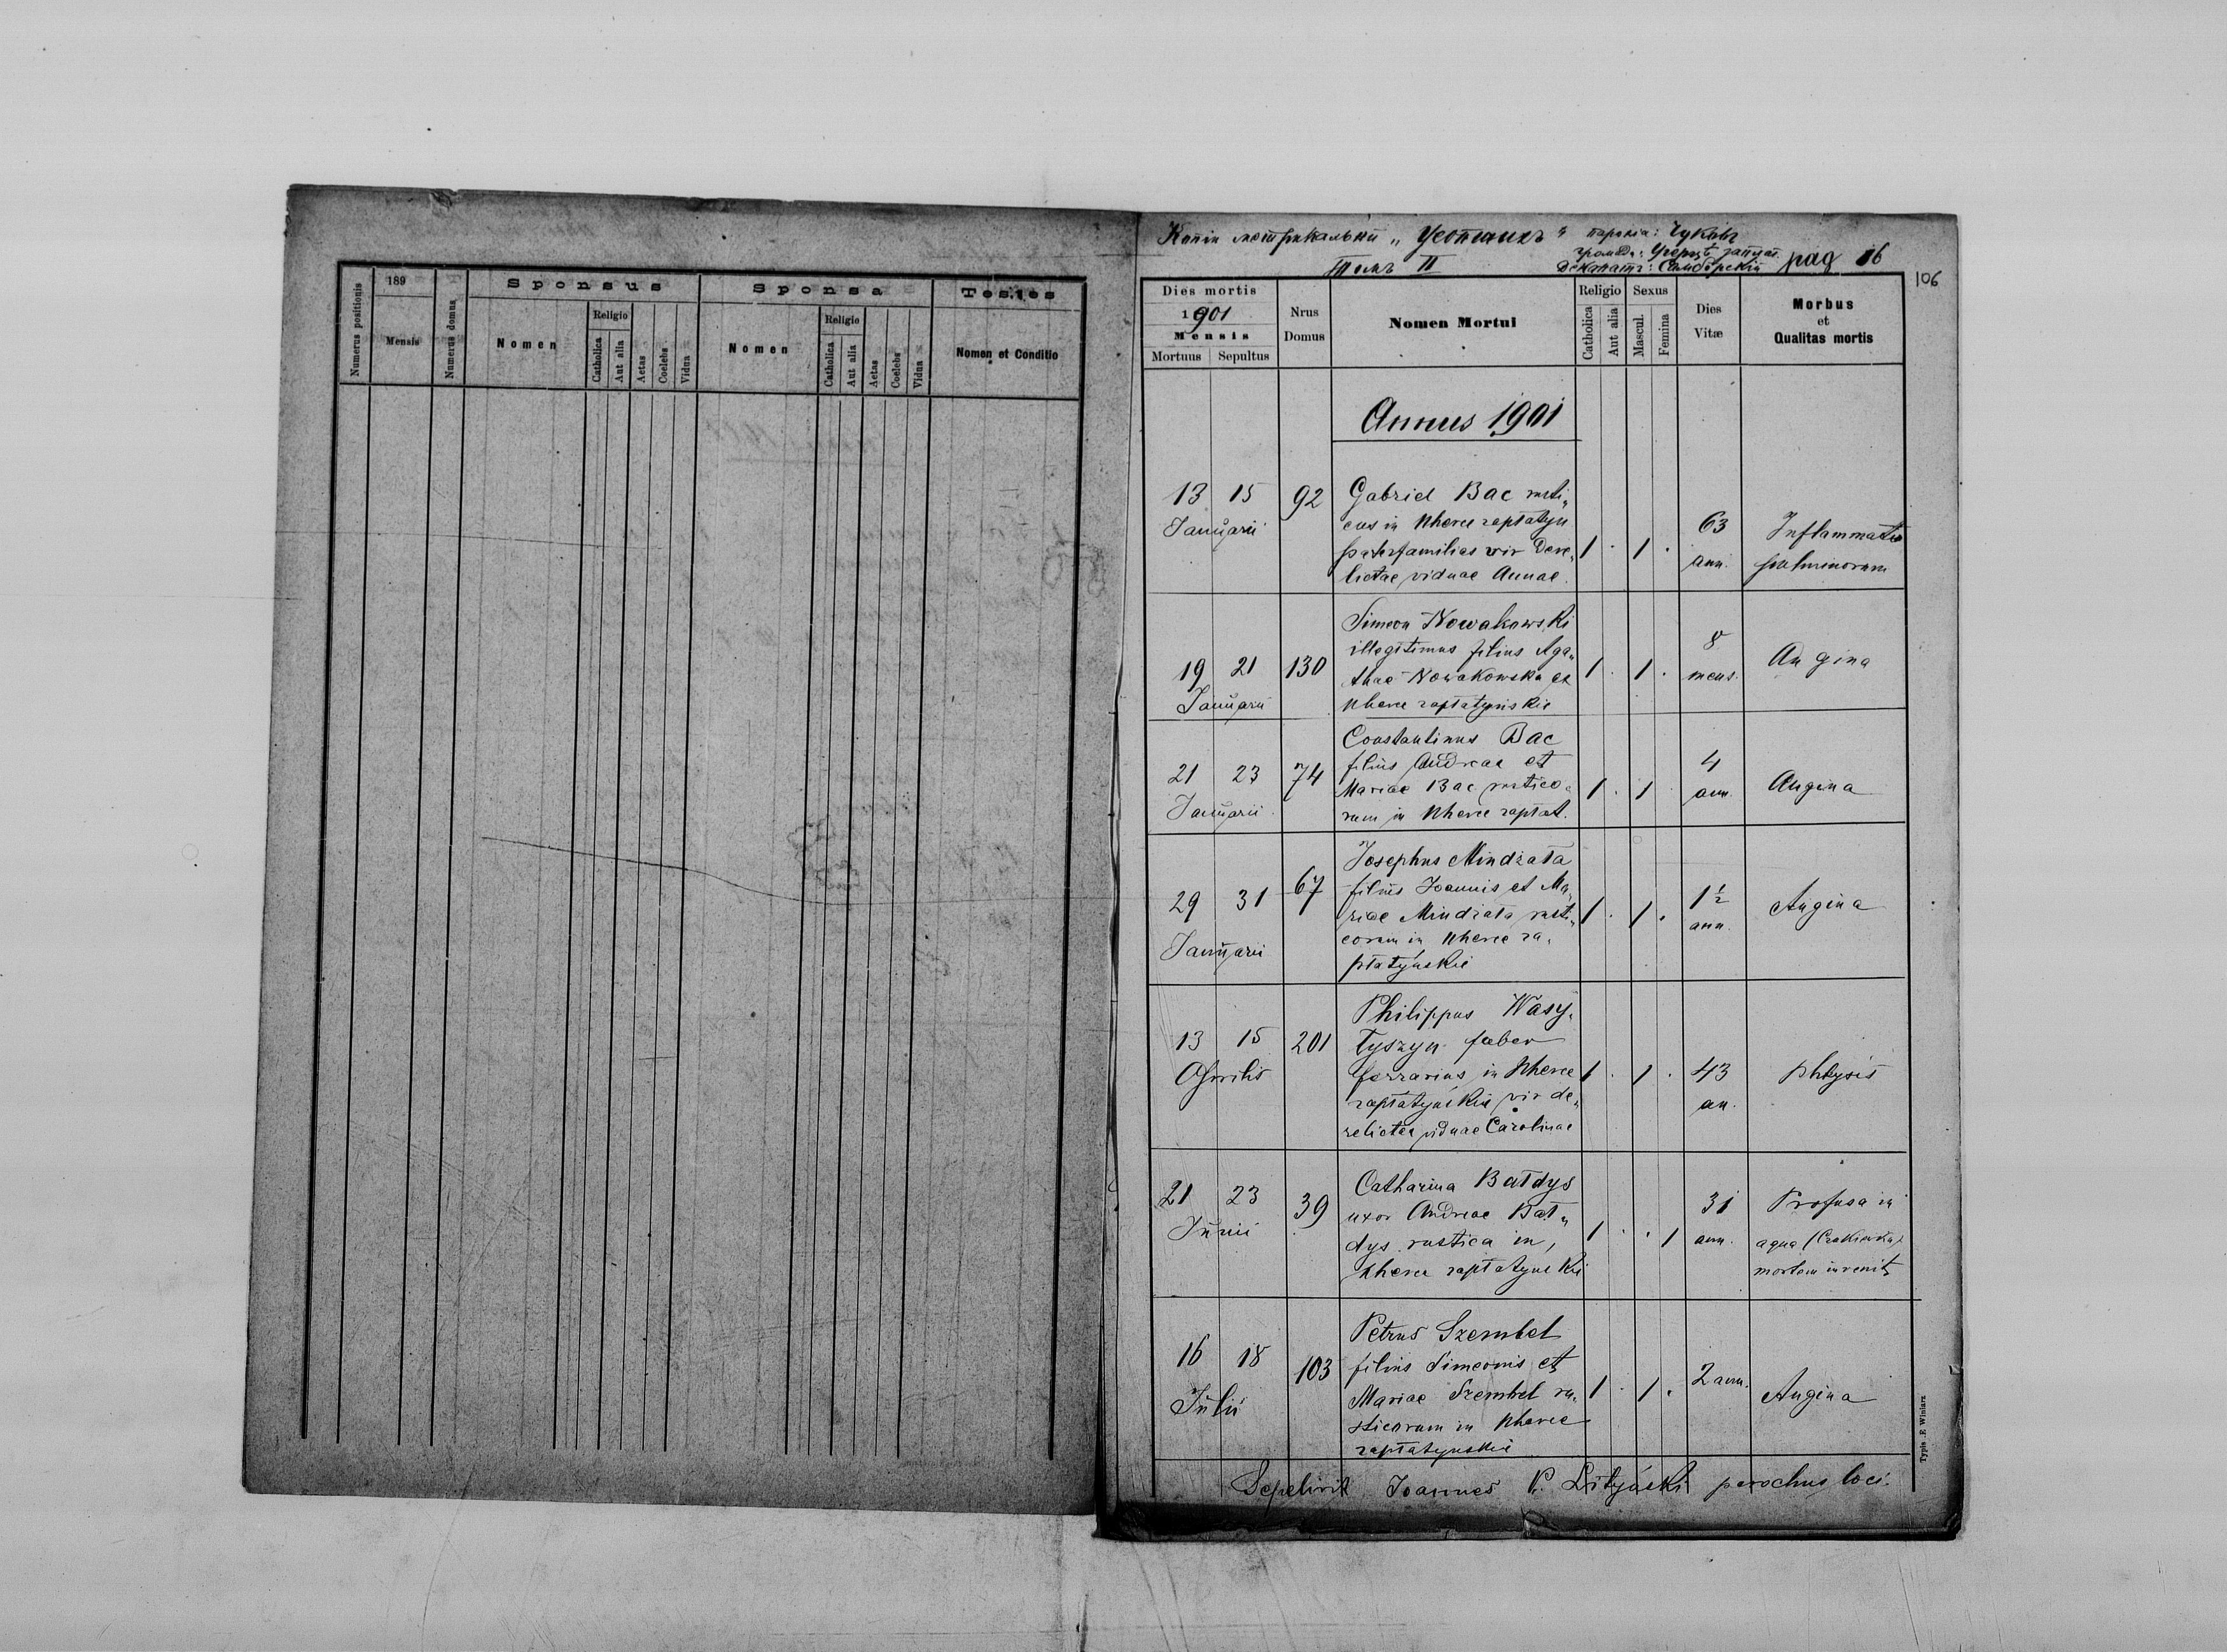 189
Sponsus
Sponsa
Testes
Numerus positionis
Mensis
Numerus domus
Nomen
Religio
Catholica
Aut alia
Aetas
Coelebs
Vidua
Nomen
Religio
Catholica
Aut alia
Aetas
Coelebs
Vidua
Nomen et Conditio
Копія метрикальни „Усопшихъ“ парохіа: Чуковъ
громада:
Томъ II
Деканатъ: Самборскій pag 16
106
Dies mortis
1901
Mensis
Mortuus Sepultus
Nrus
Domus
Nomen Mortui
Religio
Catholica
Aut alia
Sexus
Mascul.
Femina
Dies
Vitæ
Morbus
et
Qualitas mortis
Annus 1901
13 15 92 Gabriel Bac rusti„
Januarii cus in Uherce zapłatyn
paterfamilias vir dere„ 1 . 1 . 63 Inflammatio
lictae viduae Annae. ann. pulminorum
Simeon Nowakowski
illegitimus filius Aga„
19 21 130 thae Nowakowska ex 1 . 1 . 8 mens. Angina
Januarii Uherce zapłatyńskie
Constantinus Bac
filius Andreae et
21 23 74 Mariae Bac rustico„ 1 . 1 4 ann. Angina
Januarii rum in Uherce zapłat.
Josephus Mindziała
67 filius Joannis et Ma„
29 31 riae Mindziała rusti„ 1 . 1 . 1½ ann. Angina
corum in Uherce za„
Januarii płatyńskie
Philippus Wasy„
13 15 201 łyszyn faber
Aprilis ferrarius in Uherce 1 . 1 . 43 an. phtysis
zapłatyńskie vir de„
relictea viduae Carolinae
Catharina Bałdys
21 23 39 uxor Andreae Bał„ 31 Profusa in
Junii dys rustica in, 1 . . 1 ann. aqua
Uherce zapłatyńskie mortem invenit
Petrus Szembel
16 18 103 filius Simeonis et
Julii Mariae Szembel ru„ 1 . 1 . 2 ann. Angina
sticorum in Uherce
zapłatynskie
Sepelivit Joannes P. Lityński parochus loci.
Typis .E Winiarz